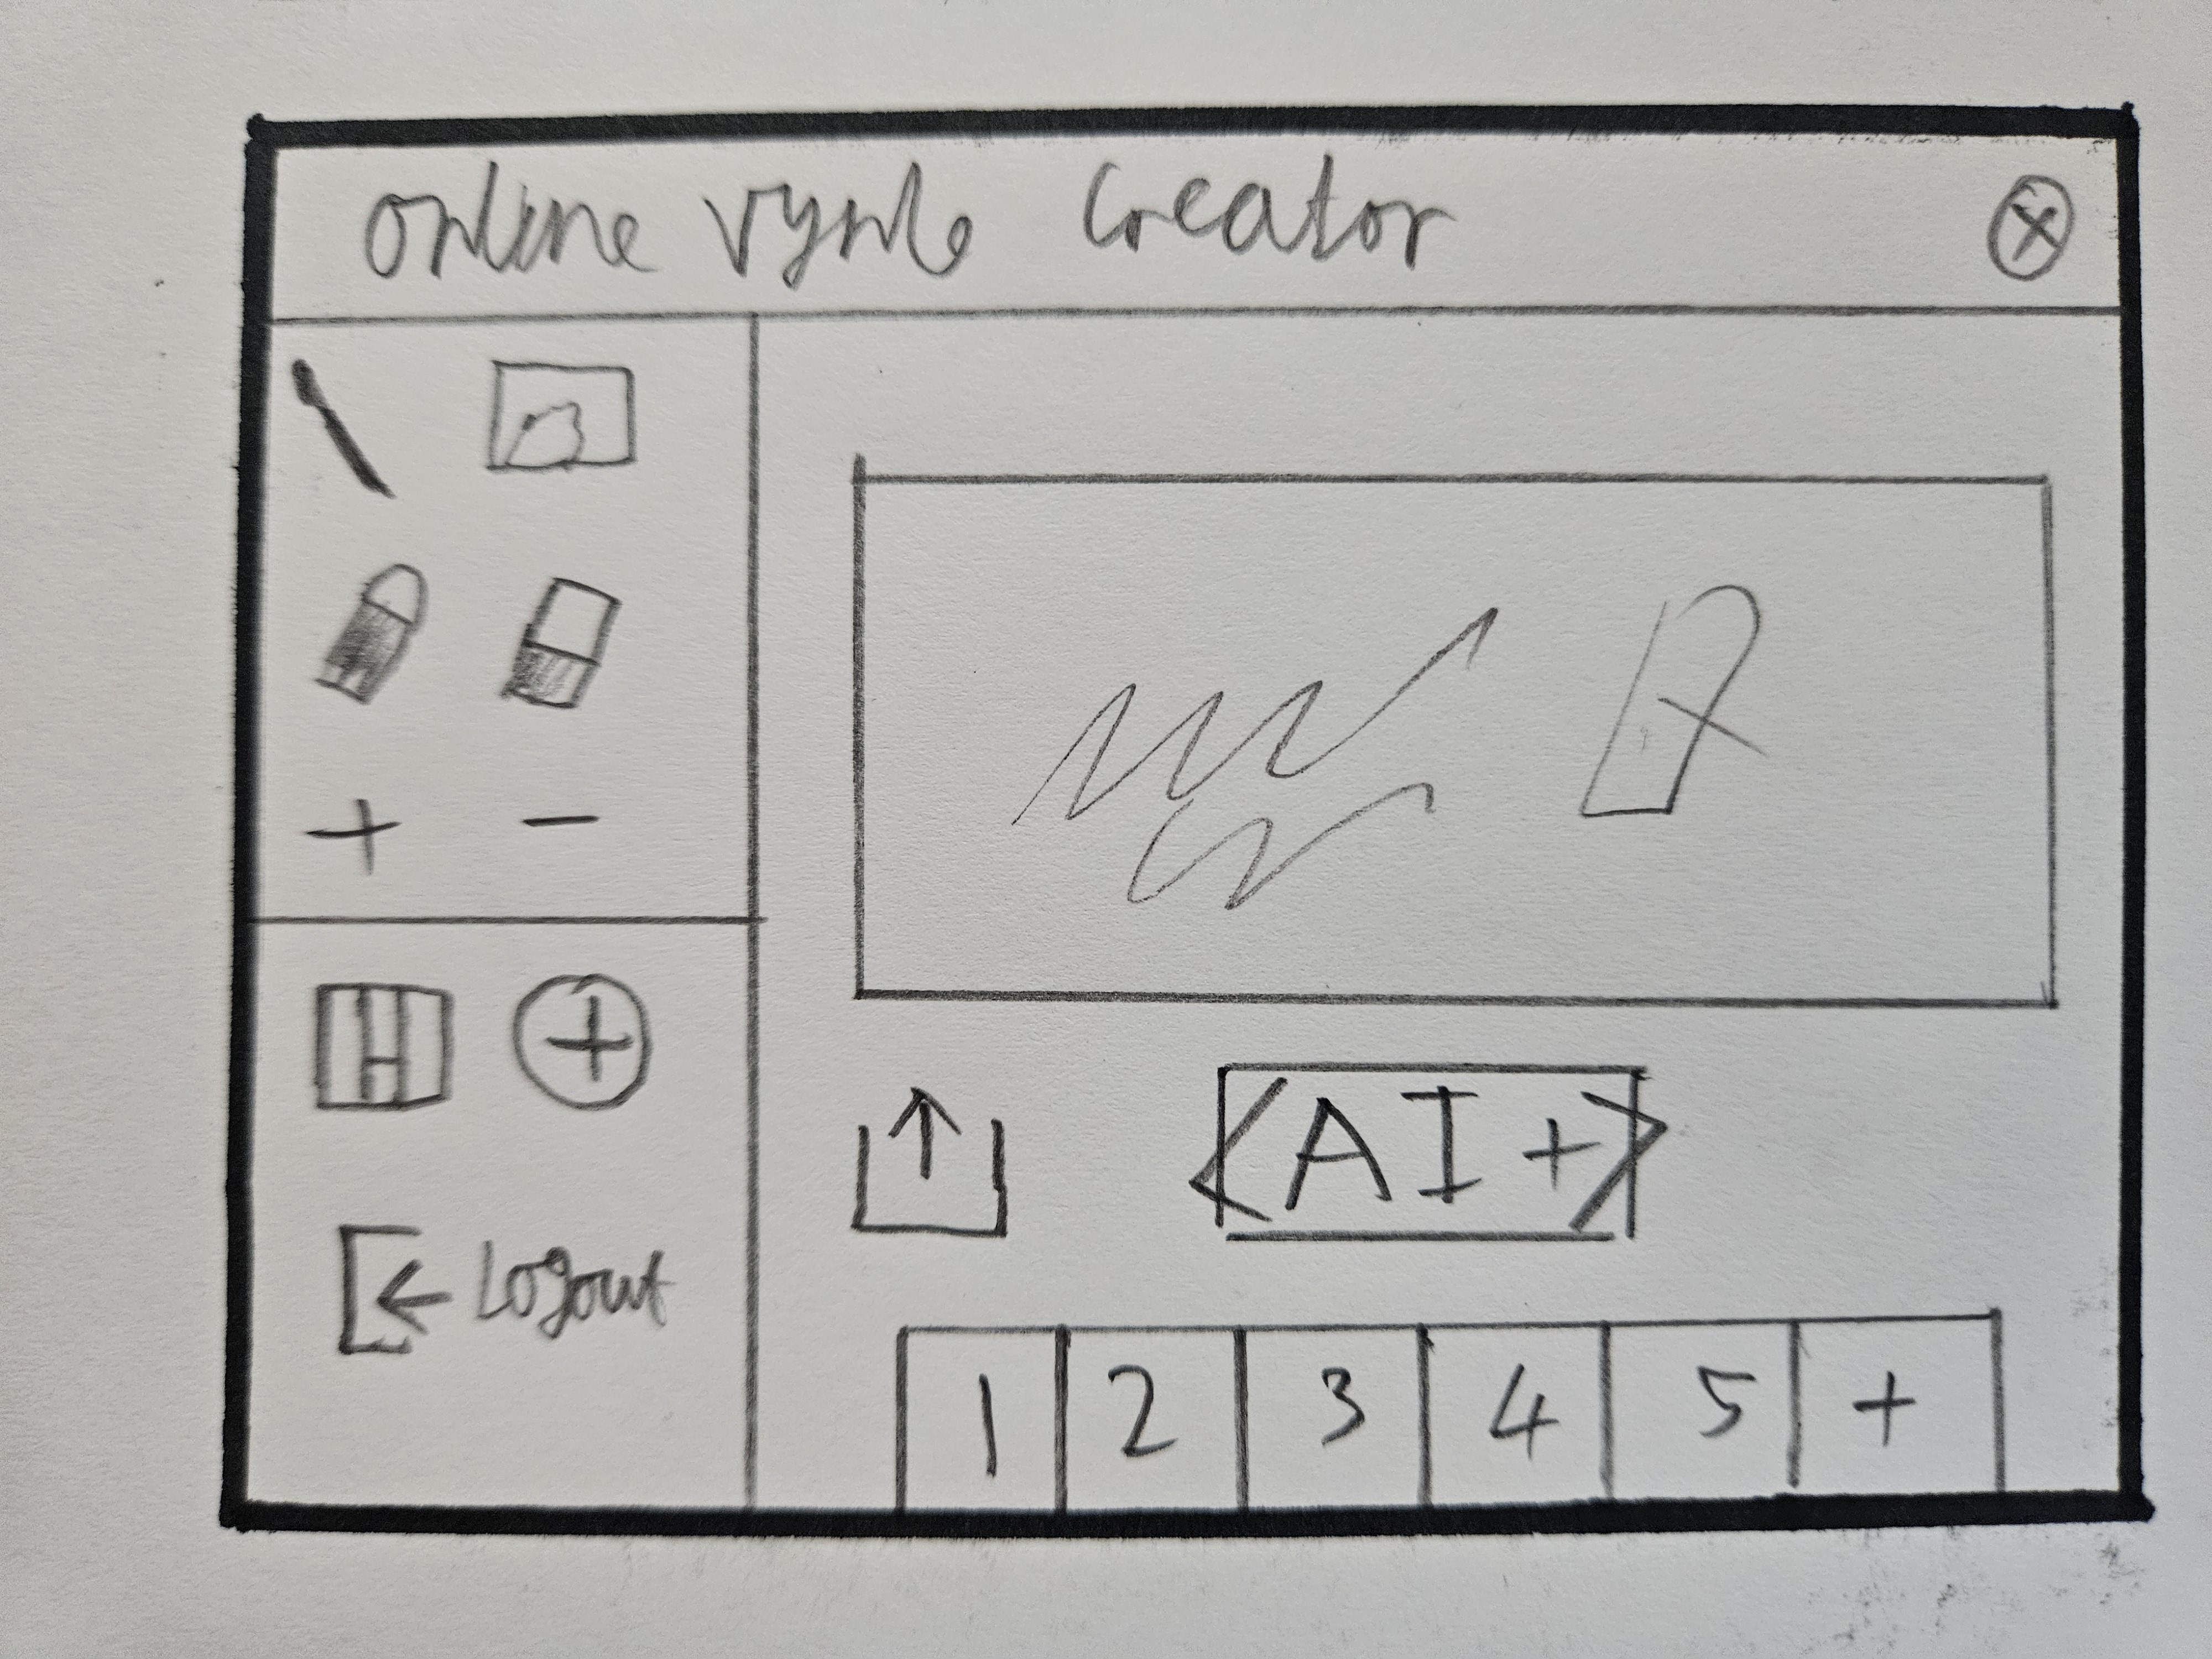 online vynlo creator
+ -
+
logout
AI+
1 2 3 4 5 +